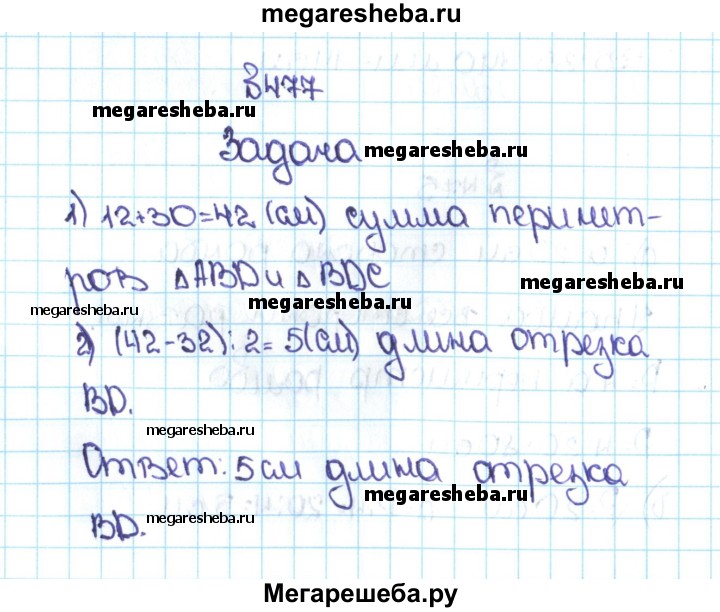 megaresheba.ru
З 477
megaresheba.ru
Задача megaresheba.ru
1) 12+30=42 (см) сумма перимет-
ров ΔABD и ΔBDC
megaresheba.ru megaresheba.ru megaresheba.ru
2) (42-32):2=5(см) длина отрезка
BD.
megaresheba.ru
Ответ: 5 см длина отрезка
megaresheba.ru
BD. megaresheba.ru
Мегарешеба.ру